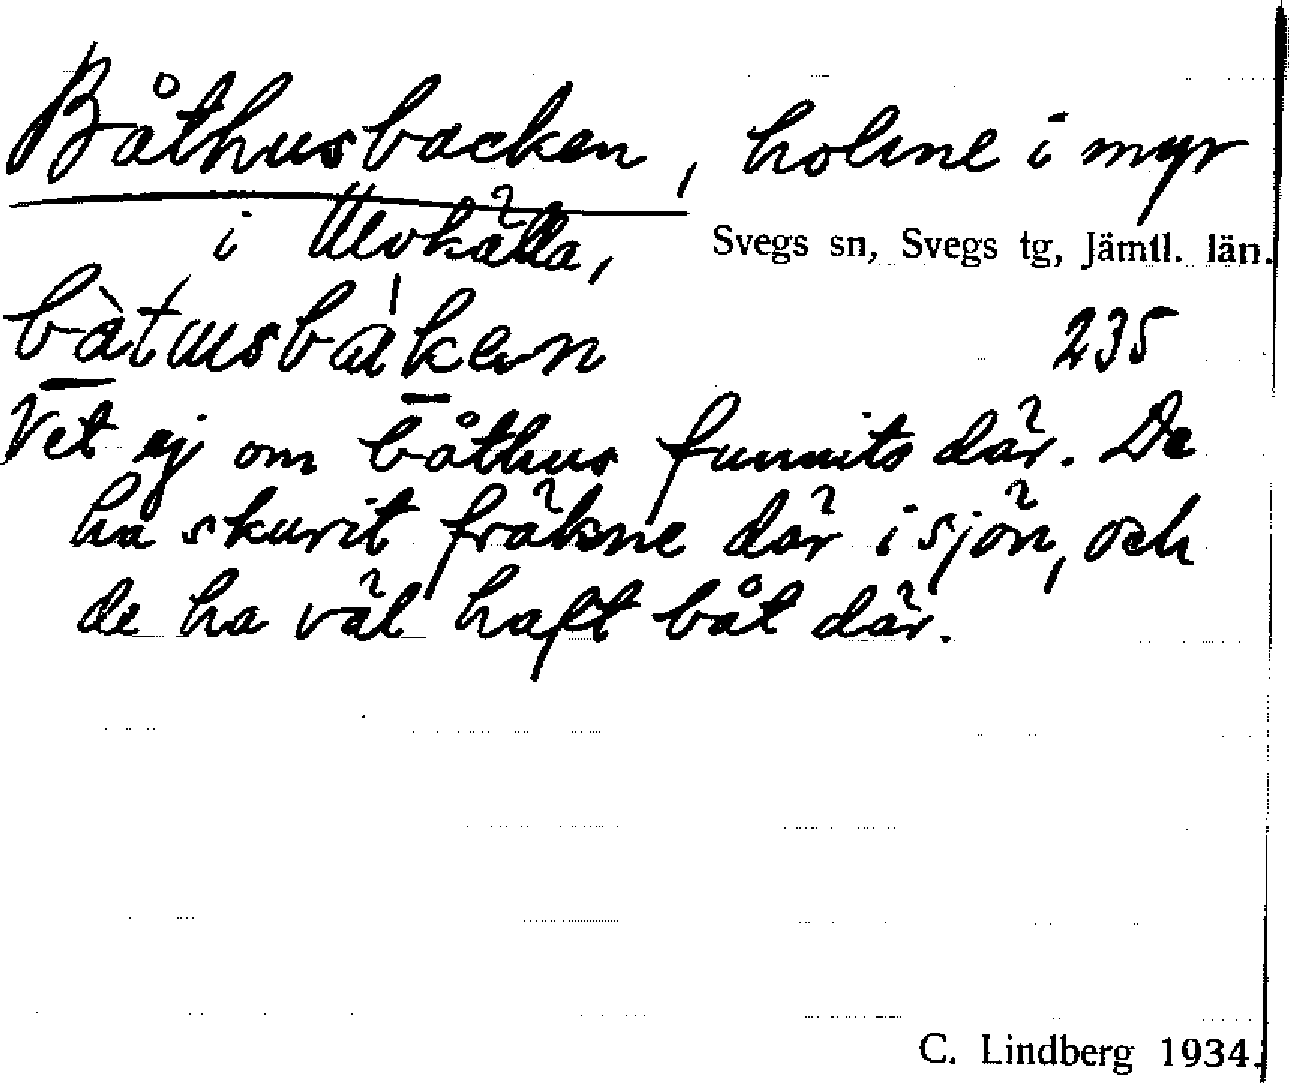 Båthusbacken, holme i myr
i Ulvkälla, Svegs sn, Svegs tg, Jämtl. län.
235
Vet ej om båthus funnits där. De
ha skurit fräkne där i sjön, och
de ha väl haft båt där.
C. Lindberg 1934.